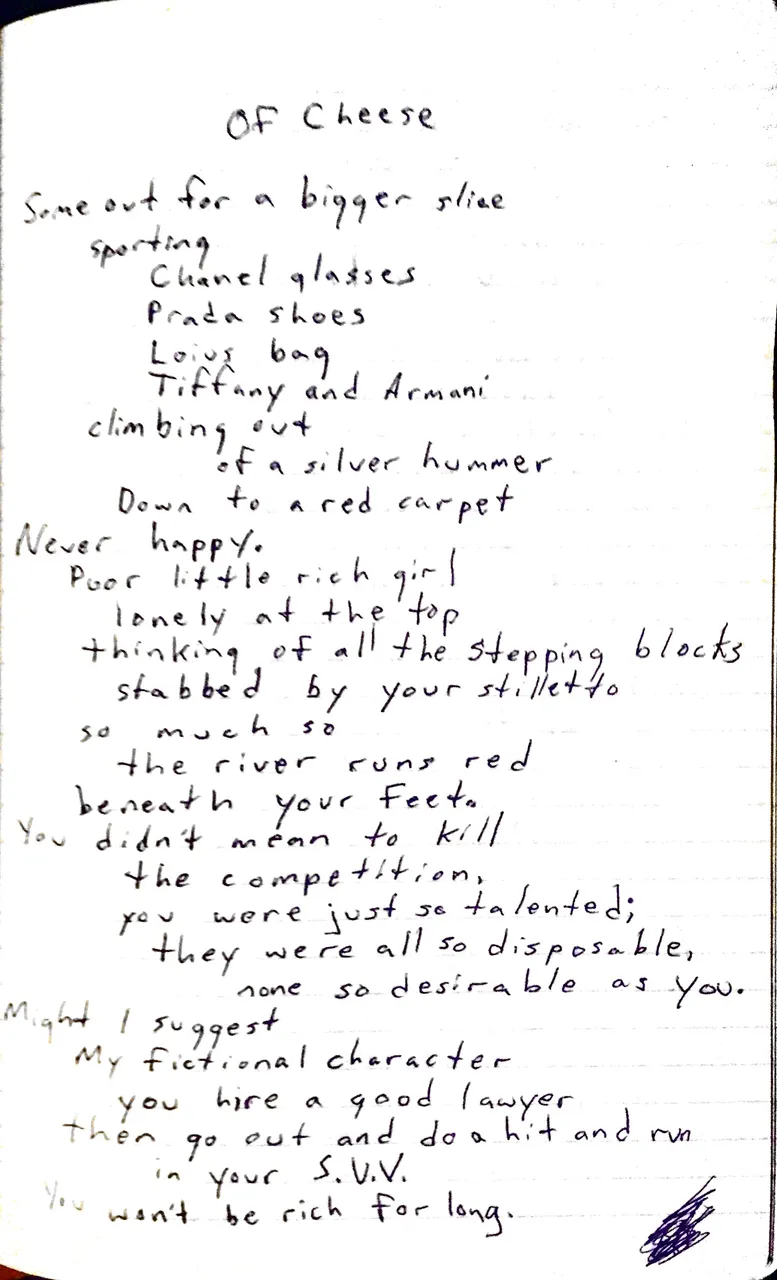 Of Cheese
Some out for a bigger slice
sporting
Chanel glasses
Prada shoes
Loius bag
Tiffany and Armani
climbing out
of a silver hummer
Down to a red carpet
Never happy.
Poor little rich girl
lonely at the top
thinking of all the stepping blocks
stabbed by your stilletto
so much so
the river runs red
beneath your feet.
You didn't mean to kill
the competition,
you were just so talented;
they were all so disposable,
none so desirable as you.
Might I suggest
My fictional character
you hire a good lawyer
then go out and do a hit and run
in your S.U.V.
You won't be rich for long.